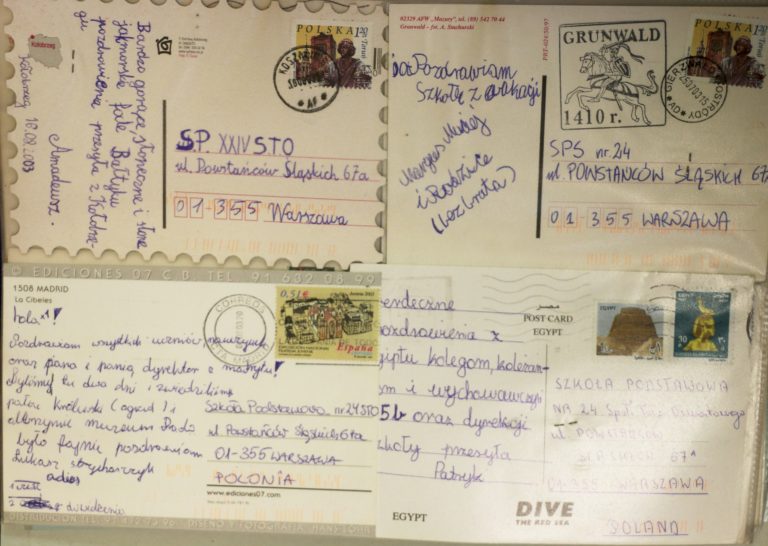 Kołobrzeg
Bardzo gorące słoneczne i słone
jak morskie fale Bałtyku
pozdrowienia przesyła z Kołobrze-
gu
Amadeusz.
Kołobrzeg 18.08.2003
POLSKA 1,20
Toruń
SP. XXIV STO
ul. Powstańców Śląskich 67a
01-355 Warszawa
02329 AFW „Mazury” tel. (89) 542 70 44
Grunwald - fot. A. Stachurski
Pozdrawiam
Szkołę z wakacji
i Rodzice
(bez brata)
GRUNWALD
1410 r.
POLSKA 1,20
Toruń
SPS nr 24
ul. POWSTAŃCÓW ŚLĄSKICH 67a
01-355 WARSZAWA
© EDICIONES 07 C.B. TEL. 91 632 08 99
1508 MADRID
La Cibeles
hola!
Pozdrawiam wszystkich uczniów nauczycieli
oraz pana i panią dyrektor z Madrytu!
Byliśmy tu dwa dni i zwiedziliśmy
pałac Królewski (ogrod) i
olbrzymie muzeum Prado
było fajnie pozdrawiam
Łukasz
adios
CORREOS
0,51€
España
Szkoła Podstawowa nr 24 STO
ul. Powstańców Śląskich 67a
01-355 WARSZAWA
POLONIA
www.ediciones07.com
serdeczne
pozdrowienia z
Egiptu kolegom, koleżan-
om i wychowawczyni
5b oraz dyrekcji
szkoły przesyła
Patryk
مصر
POST CARD
EGYPT
EGYPT
SZKOŁA PODSTAWOWA
NR 24 Społ. Tow. Oświatowego
ul. POWSTAŃCÓW
ŚLĄSKICH 67A
01-355 WARSZAWA
POLAND
EGYPT
DIVE
THE RED SEA